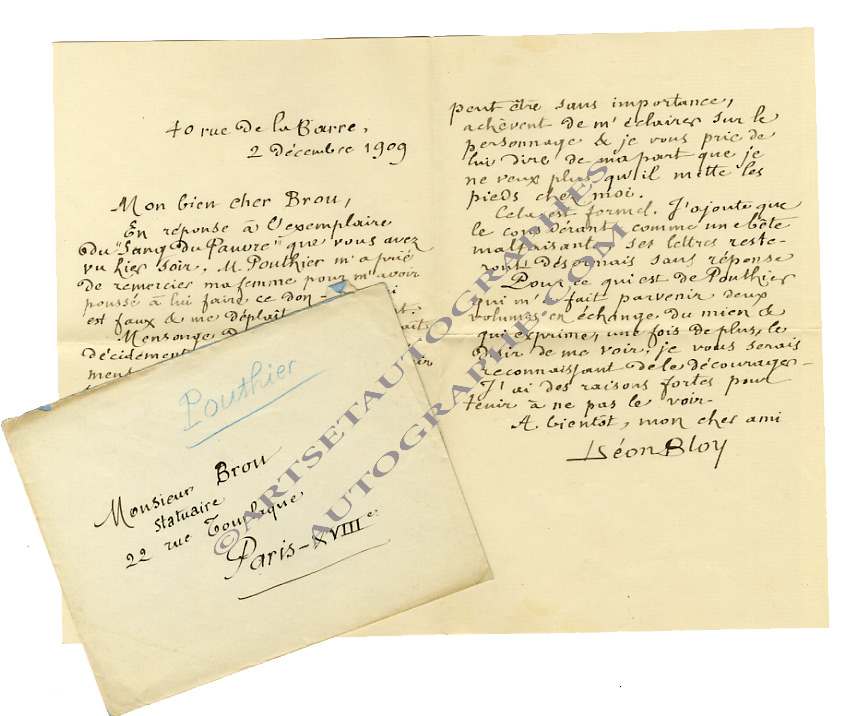 40 rue de la Barre,
2 décembre 1909
Mon bien cher Brou,
En réponse à l'exemplaire
du "Sang du Pauvre" que vous avez
vu hier soir, M. Pouthier m'a prié
de remercier ma femme pour m'avoir
poussé à lui faire ce don -
est faux & me déplaît
Mensonge
décidément
peut être sans importance,
achèvent de m'éclairer sur le
personnage & je vous prie de
lui dire de ma part que je
ne veux plus qu'il mette les
pieds chez moi.
Cela est formel. J'ajoute que
le considérant comme une bête
malfaisante, ses lettres reste-
ront désormais sans réponse
Pour ce qui est de Pouthier
qui m'a fait parvenir deux
volumes en échange du mien &
qui exprime, une fois de plus, le
désir de me voir, je vous serais
reconnaissant de le décourager -
J'ai des raisons fortes pour
tenir à ne pas le voir -
A bientôt, mon cher ami
Léon Bloy
Pouthier
Monsieur Brou
statuaire
22 rue Tourlaque
Paris - XVIIIe
©ARTSETAUTOGRAPHES
AUTOGRAPHE.COM